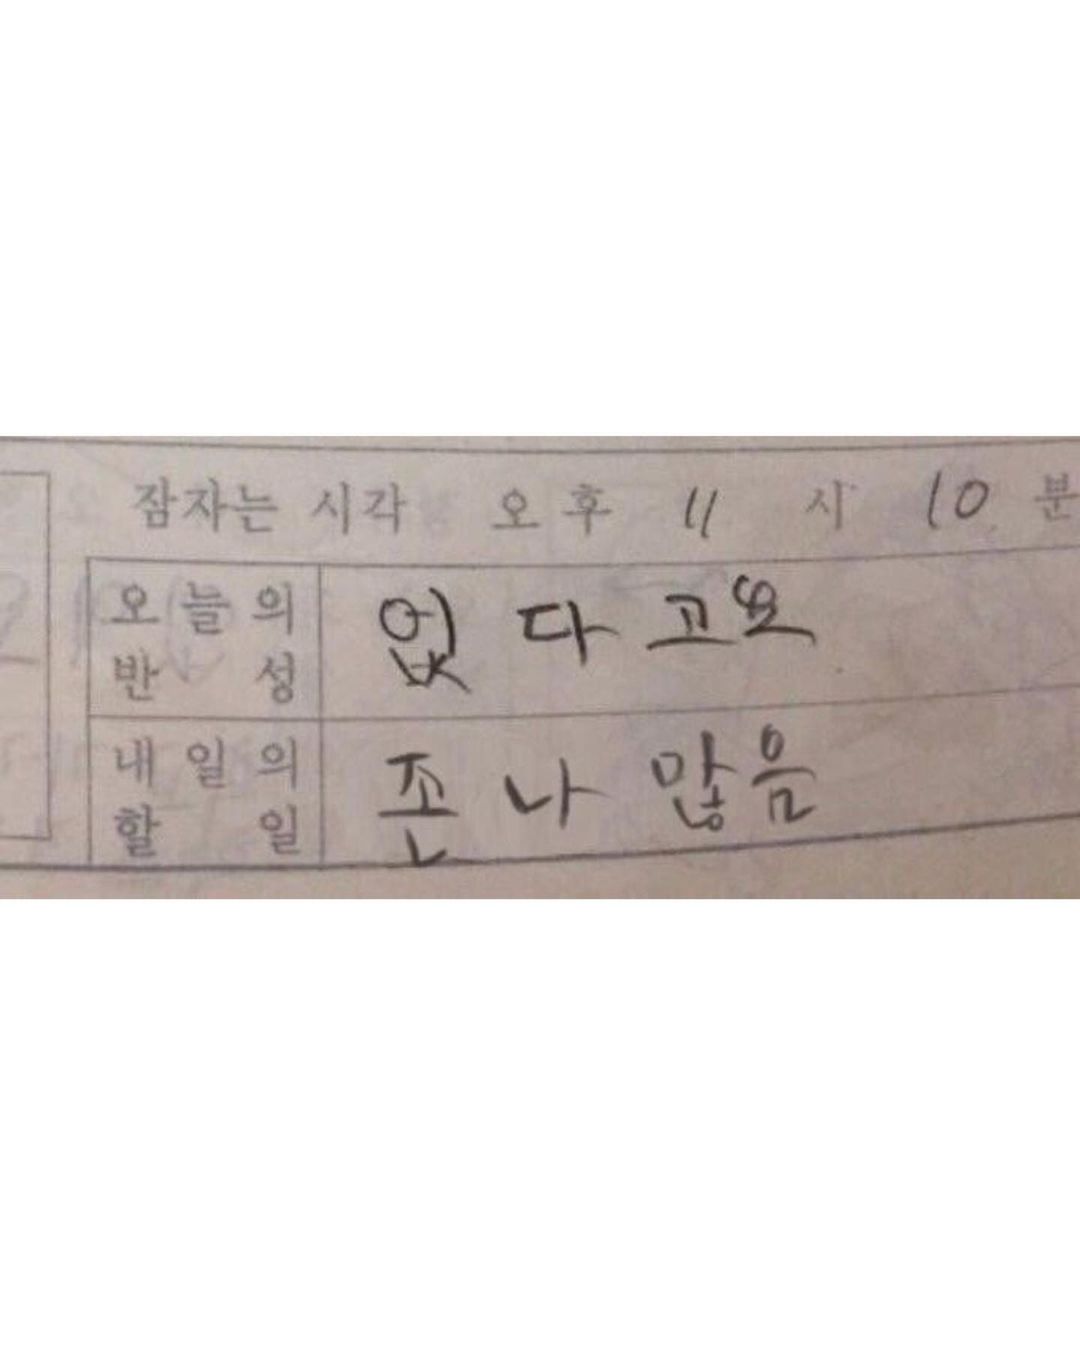 잠자는 시각 오후 11 시 10 분
오늘의 반성 없다고요
내일의 할일 존나 많음